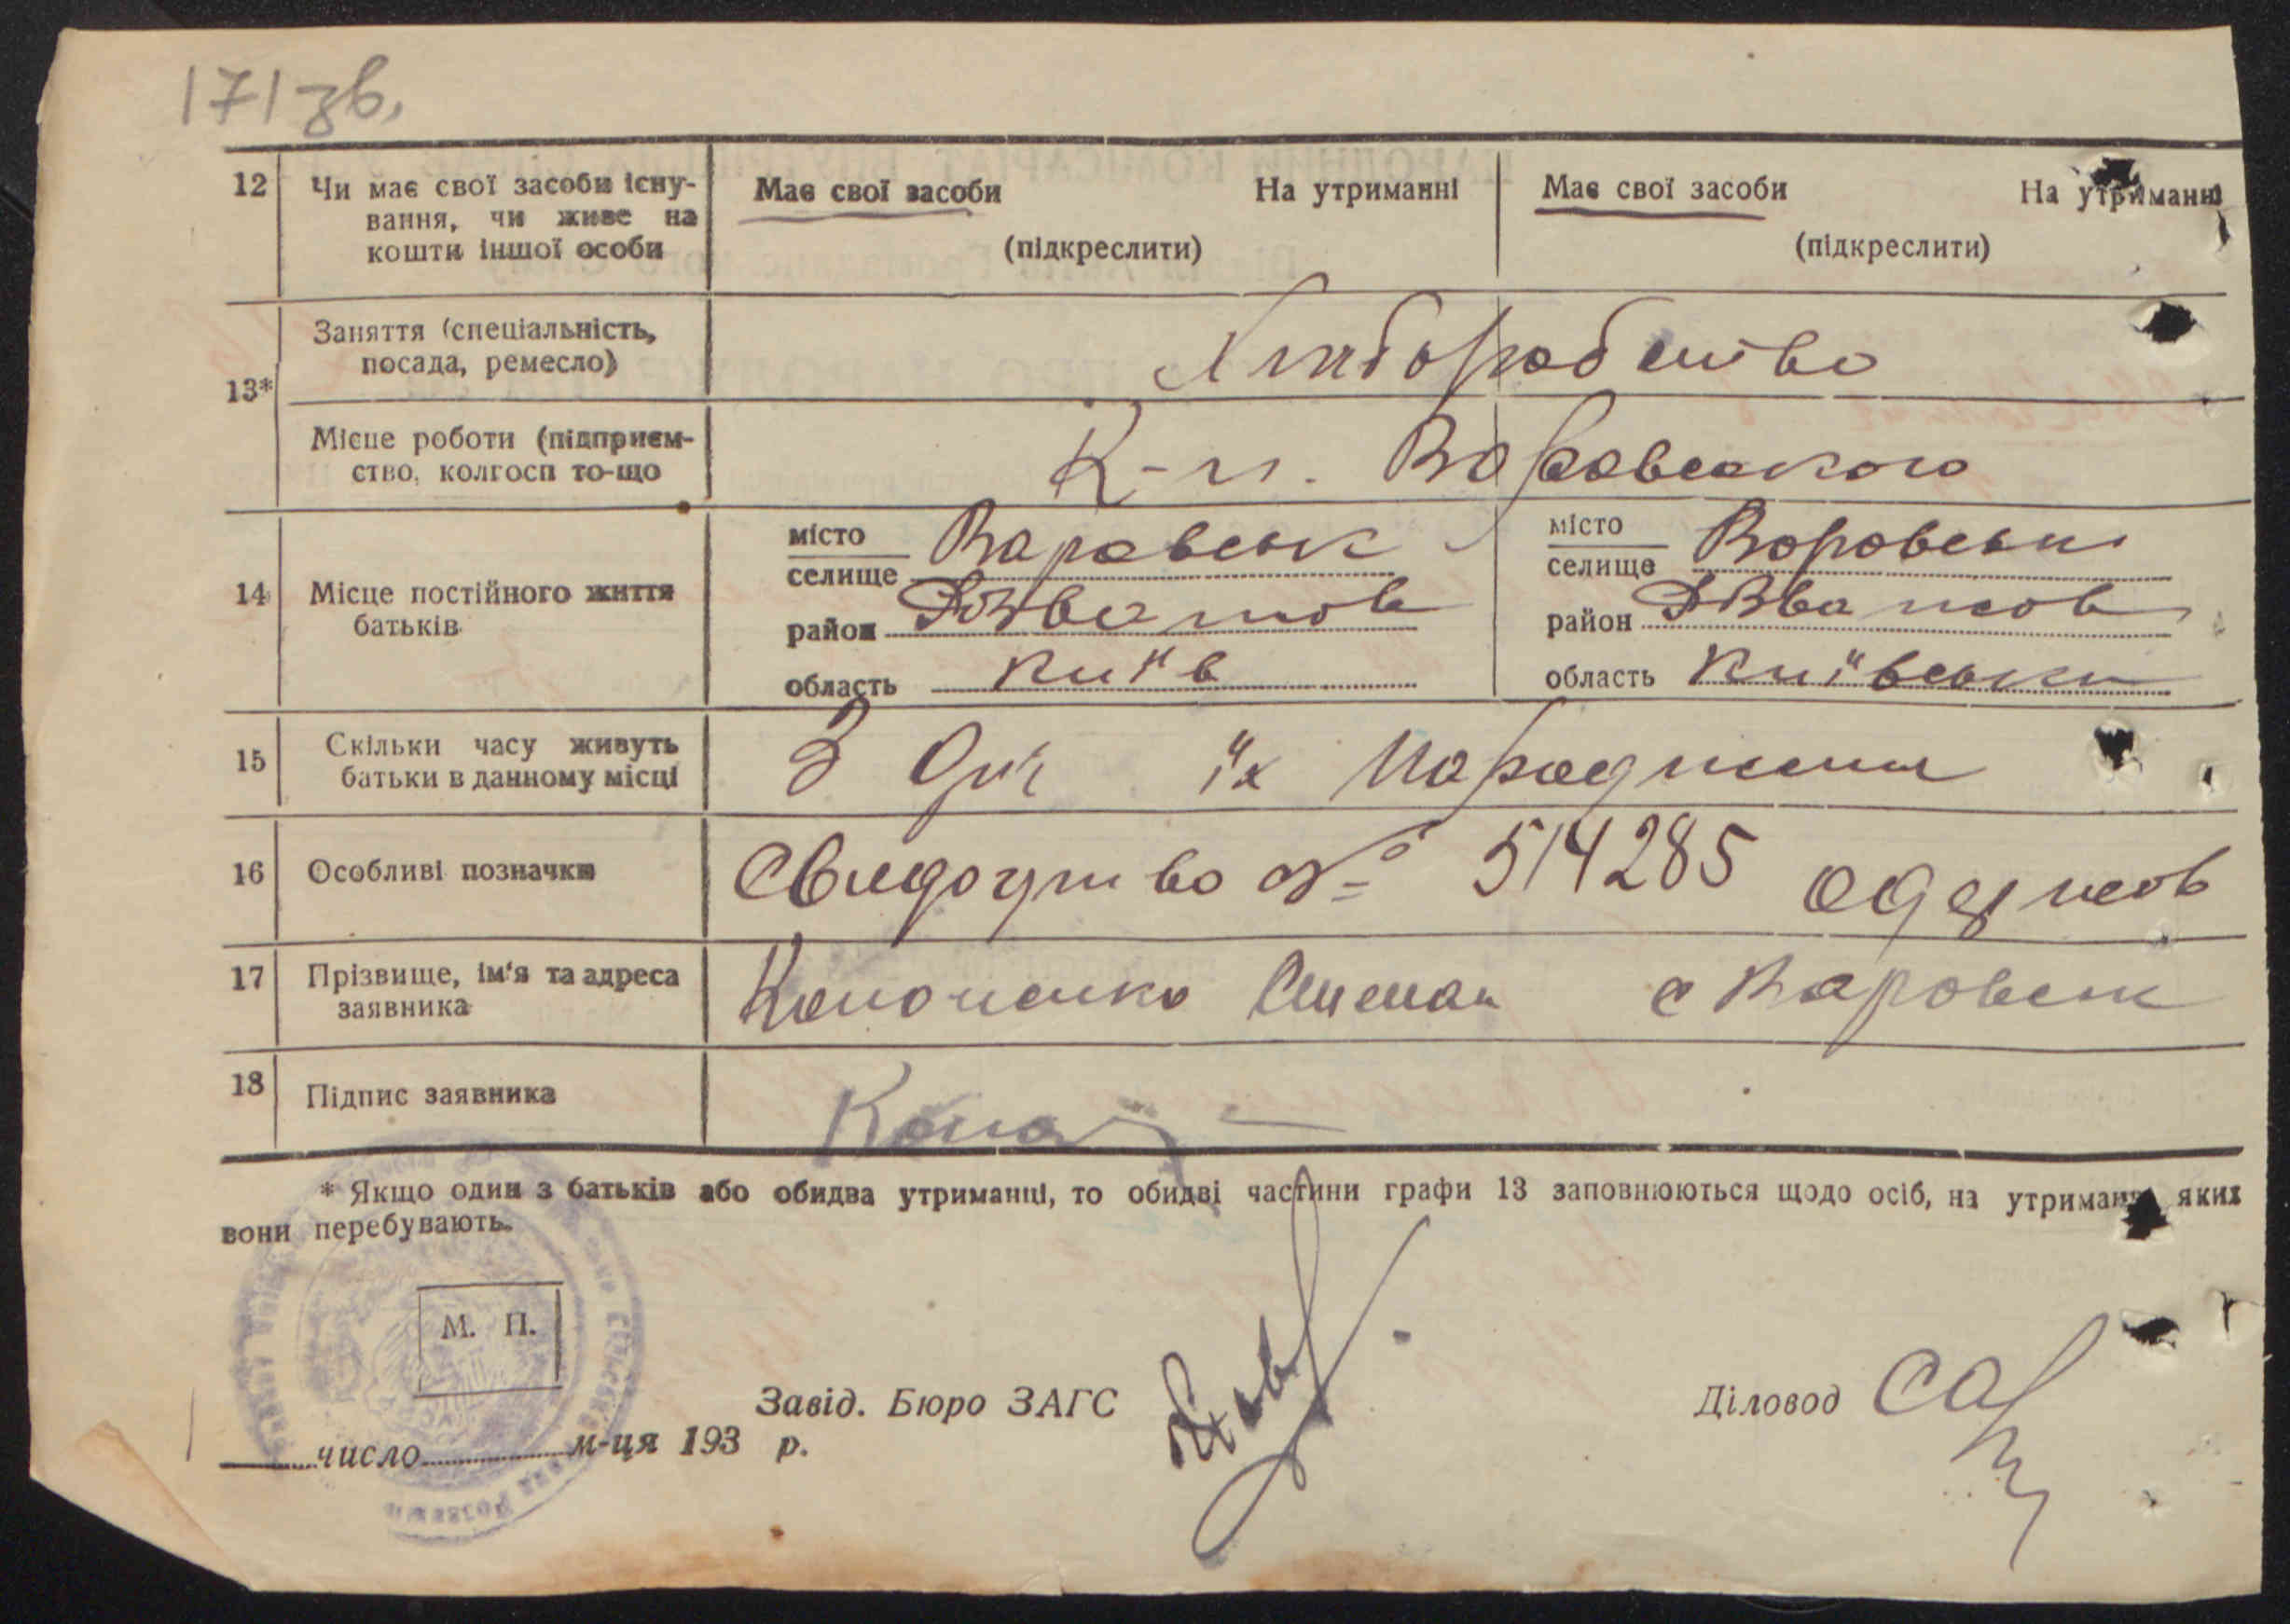 171 зв.
12 Чи має свої засоби існу-
вання, чи живе на
кошти іншої особи
Має свої засоби На утриманні
(підкреслити)
Має свої засоби На утриманні
(підкреслити)
13*
Заняття (спеціальність,
посада, ремесло)
Хліборобство
Місце роботи (підприєм-
ство, колгосп то-що
К-п. Воровського
14 Місце постійного життя
батьків
місто
селище Варовськ
район Розважов
область Київ
місто
селище Воровськ
район Розважов
область Київська
15 Скільки часу живуть
батьки в данному місці
З дня їх народження
16 Особливі позначки
Свидоцтво № 514285 одержов
17 Прізвище, ім'я та адреса
заявника
Кононенко Степан с Варовськ
18 Підпис заявника
Коно
* Якщо один з батьків або обидва утриманці, то обидві частини графи 13 заповнюються щодо осіб, на утриманні яких
вони перебувають.
М. П.
Завід. Бюро ЗАГС
Діловод
число м-ця 193 р.